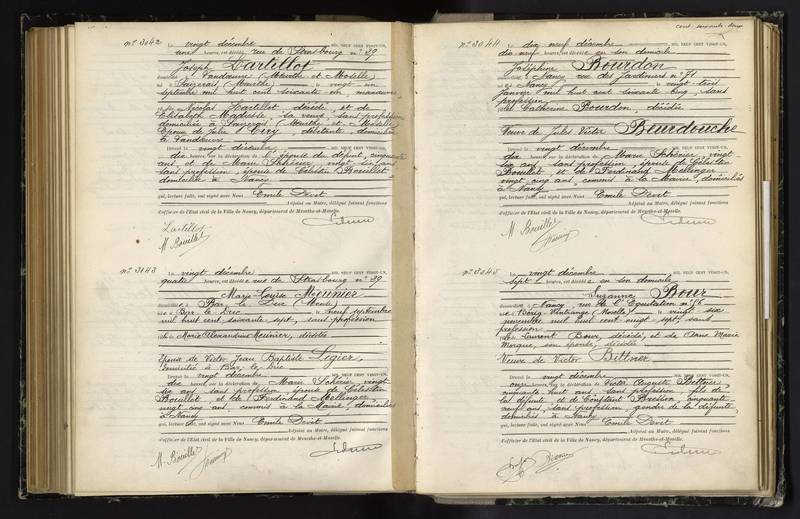 N° 3042 Le vingt décembre MIL NEUF CENT VINGT-UN,
une heure, est décédé rue de Strasbourg n° 39
Joseph Lartillot
domicilié à Vandœuvre (Meurthe et Moselle)
né à Saizerais (Meurthe) le vingt un
septembre mil huit cent soixante six, manœuvre
fils de Nicolas Lartillot décédé et de
Elisabeth sa veuve, sans profession
domiciliée à Saizerais (Meurthe et Moselle)
Epoux de Julie débitante, domiciliée
à Vandœuvre
Dressé le vingt décembre MIL NEUF CENT VINGT-UN,
dix heures, sur la déclaration de l'épouse du défunt, cinquante
ans, et de Marie Schéeier, vingt six ans
sans profession, épouse de Célestin Bouillet
domiciliés à Nancy
qui, lecture faite, ont signé avec Nous Emile Devit
Adjoint au Maire, délégué faisant fonctions
d'officier de l'Etat civil de la Ville de Nancy, département de Meurthe-et-Moselle.
Lartillot
M. Bouillet
N° 3043 Le vingt décembre MIL NEUF CENT VINGT-UN,
quatre heures, est décédée rue de Strasbourg n° 39
Marie Louise Meunier
domiciliée à Bar le Duc (Meuse)
née à Bar le Duc le neuf septembre
mil huit cent cinquante sept, sans profession
fille de Marie Alexandrine Meunier, décédée
Epouse de Victor Jean Baptiste Ligier,
domicilié à Bar le Duc
Dressé le vingt décembre MIL NEUF CENT VINGT-UN,
dix heures, sur la déclaration de Marie Schéeier, vingt
six ans, sans profession, épouse de Célestin
Bouillet et de Ferdinand Mellinger
vingt cinq ans, commis à la Mairie, domiciliés
à Nancy
qui, lecture faite, ont signé avec Nous Emile Devit
Adjoint au Maire, délégué faisant fonctions
d'officier de l'Etat civil de la Ville de Nancy, département de Meurthe-et-Moselle.
M. Bouillet
N° 3044 Le dix neuf décembre MIL NEUF CENT VINGT-UN,
dix neuf heures, est décédée en son domicile
Joséphine Bourdon
domiciliée à Nancy rue des Jardiniers n° 71
née à Nancy le vingt trois
janvier mil huit cent soixante cinq, sans
profession
fille de Catherine Bourdon, décédée
Veuve de Jules Victor Beurdouche
Dressé le vingt décembre MIL NEUF CENT VINGT-UN,
dix heures, sur la déclaration de Marie Schéeier, vingt
six ans, sans profession, épouse de Célestin
Bouillet et de Ferdinand Mellinger
vingt cinq ans, commis à la Mairie, domiciliés
à Nancy
qui, lecture faite, ont signé avec Nous Emile Devit
Adjoint au Maire, délégué faisant fonctions
d'officier de l'Etat civil de la Ville de Nancy, département de Meurthe-et-Moselle.
M. Bouillet
N° 3045 Le vingt décembre MIL NEUF CENT VINGT-UN,
sept heures, est décédée en son domicile
Suzanne Bour
domiciliée à Nancy rue de l'Equitation n°
née à (Moselle) le vingt six
novembre mil huit cent vingt sept, sans
profession
fille de Laurent Bour, décédé, et de Anne Marie
Morque, son épouse, décédée
Veuve de Victor Bittner
Dressé le vingt décembre MIL NEUF CENT VINGT-UN,
onze heures, sur la déclaration de Victor Auguste Bittner
cinquante huit ans, sans profession, fils de
la défunte et de Constant cinquante
neuf ans, sans profession, gendre de la défunte
domiciliés à Nancy
qui, lecture faite, ont signé avec Nous Emile Devit
Adjoint au Maire, délégué faisant fonctions
d'officier de l'Etat civil de la Ville de Nancy, département de Meurthe-et-Moselle.